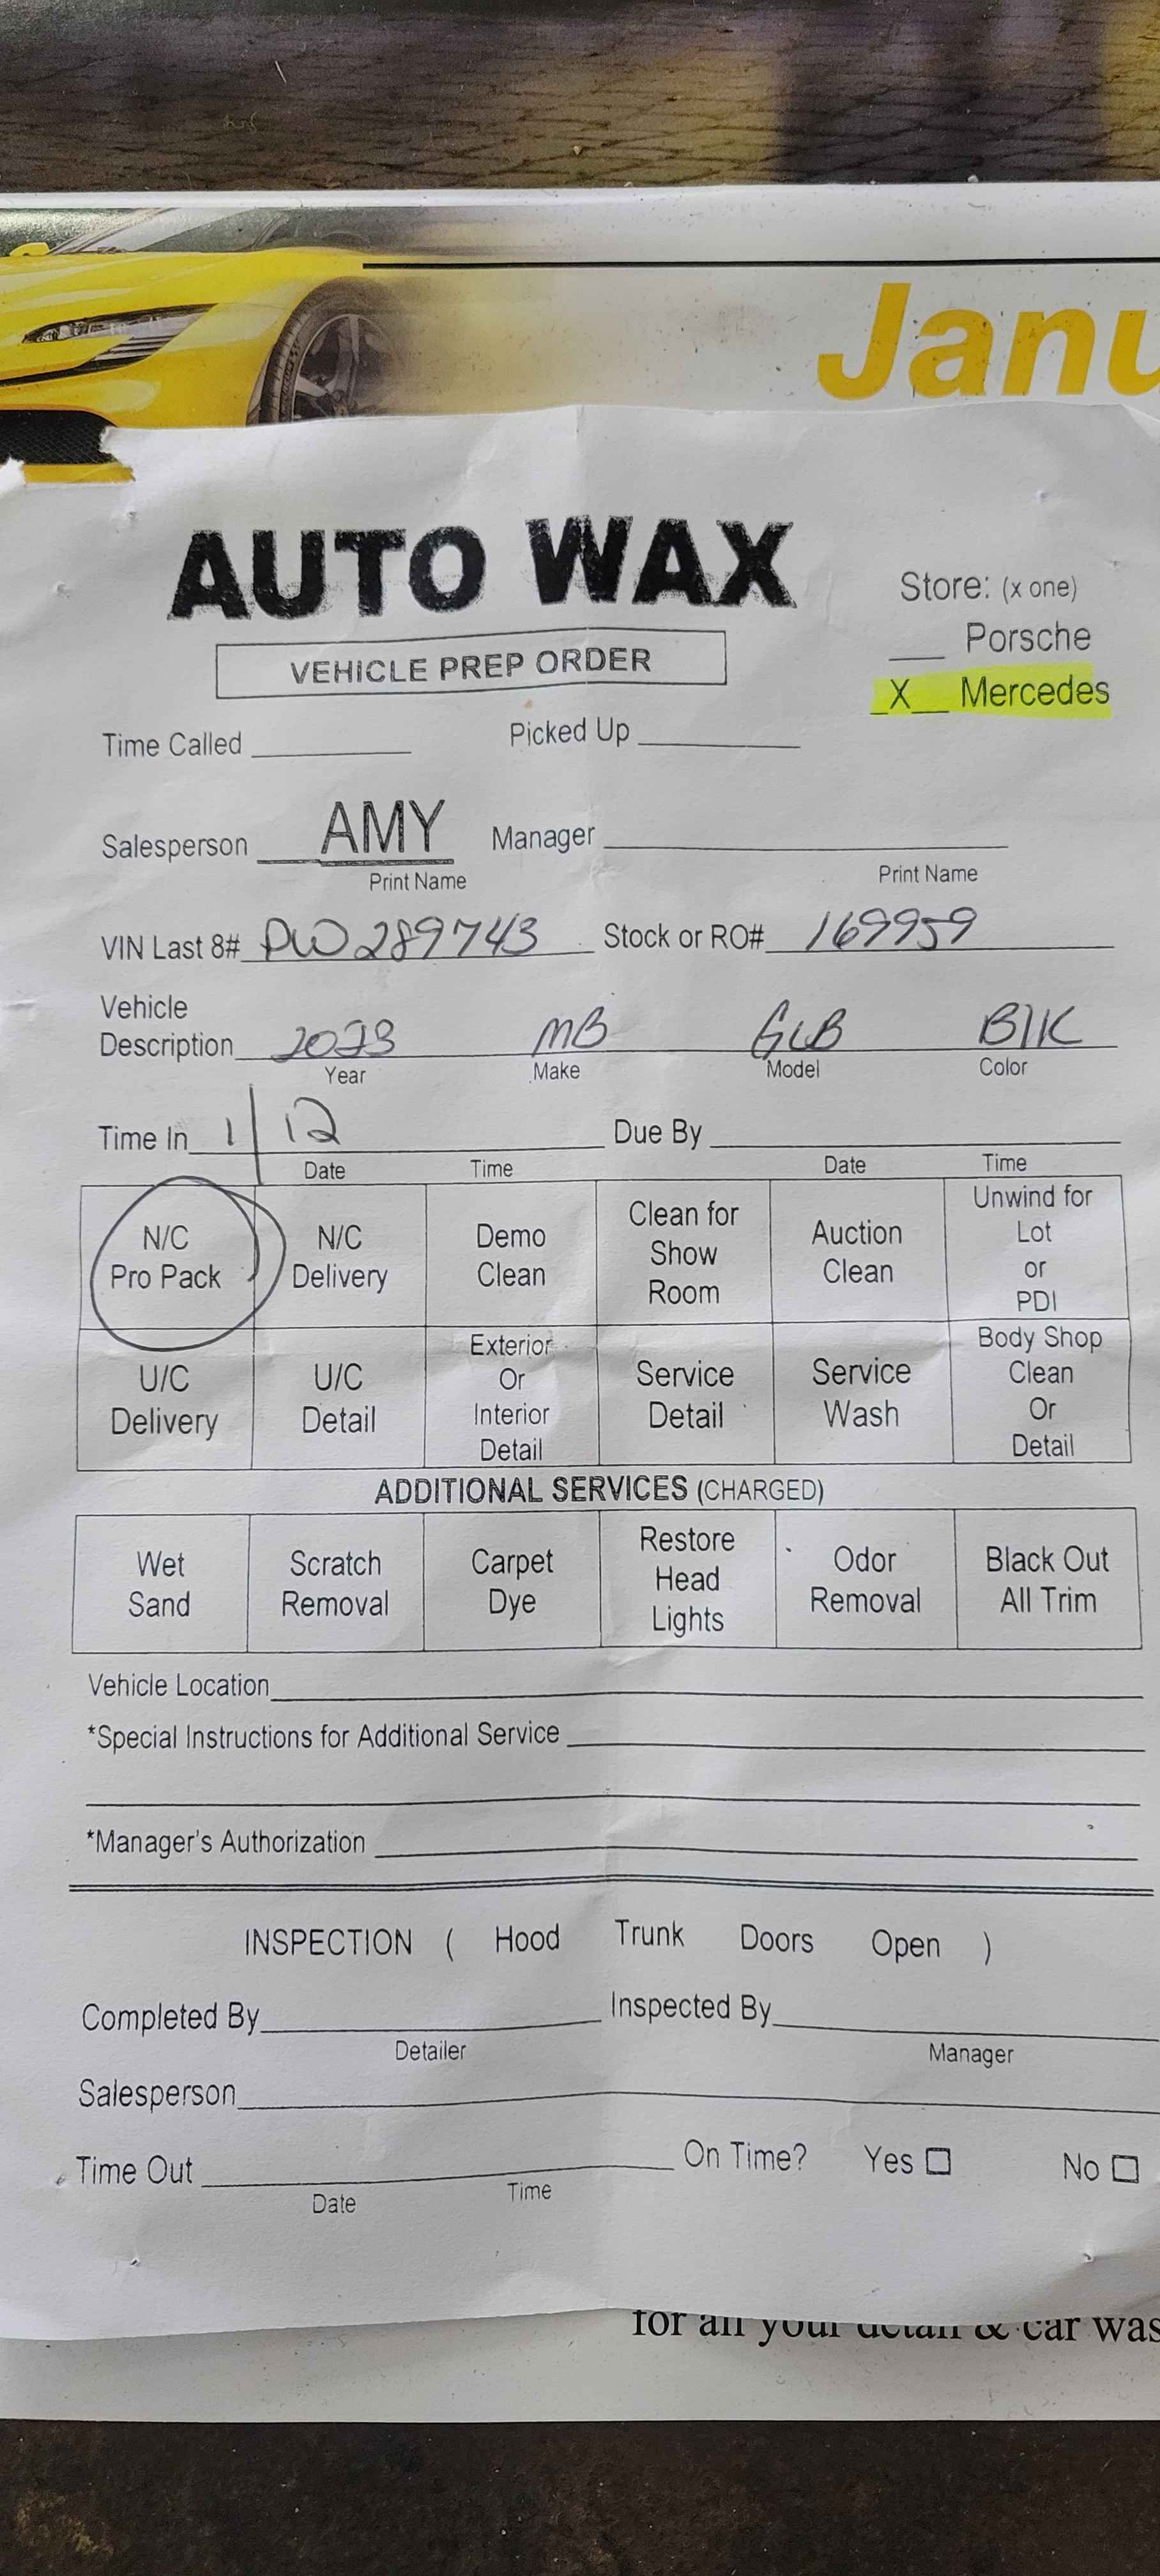 Janu
AUTO WAX
VEHICLE PREP ORDER
Store: (x one)
___ Porsche
_X__ Mercedes
Time Called ________ Picked Up ________
Salesperson AMY Manager ________
Print Name Print Name
VIN Last 8# PW289743 Stock or RO# 169959
Vehicle
Description 2023 MB GLB Blk
Year Make Model Color
Time In 1/12 Due By ________
Date Time Date Time
N/C Pro Pack
N/C Delivery
Demo Clean
Clean for Show Room
Auction Clean
Unwind for Lot or PDI
U/C Delivery
U/C Detail
Exterior Or Interior Detail
Service Detail
Service Wash
Body Shop Clean Or Detail
ADDITIONAL SERVICES (CHARGED)
Wet Sand
Scratch Removal
Carpet Dye
Restore Head Lights
Odor Removal
Black Out All Trim
Vehicle Location ________
*Special Instructions for Additional Service ________
*Manager's Authorization ________
INSPECTION ( Hood Trunk Doors Open )
Completed By ________ Inspected By ________
Detailer Manager
Salesperson ________
Time Out ________ On Time? Yes ☐ No ☐
Date Time
for all your detail & car was